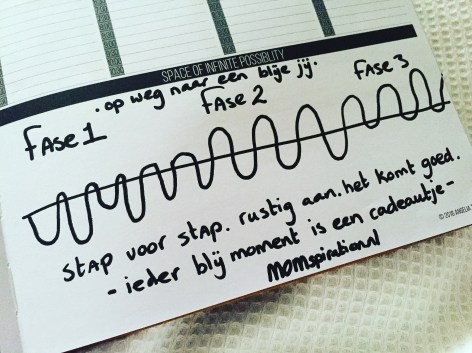 SPACE OF INFINITE POSSIBLITY
. op weg naar een blije jij.
FASE 1
FASE 2
FASE 3
STAP VOOR STAP. rustig aan. het komt goed.
- ieder blij moment is een cadeautje -
MOMspirationnl
© 2016 ANGELIA